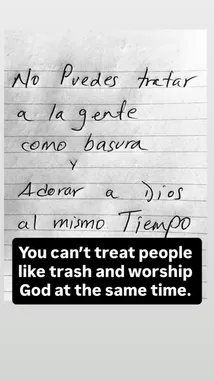 No Puedes tratar
a la gente
como basura
y
Adorar a Dios
al mismo Tiempo
You can't treat people
like trash and worship
God at the same time.